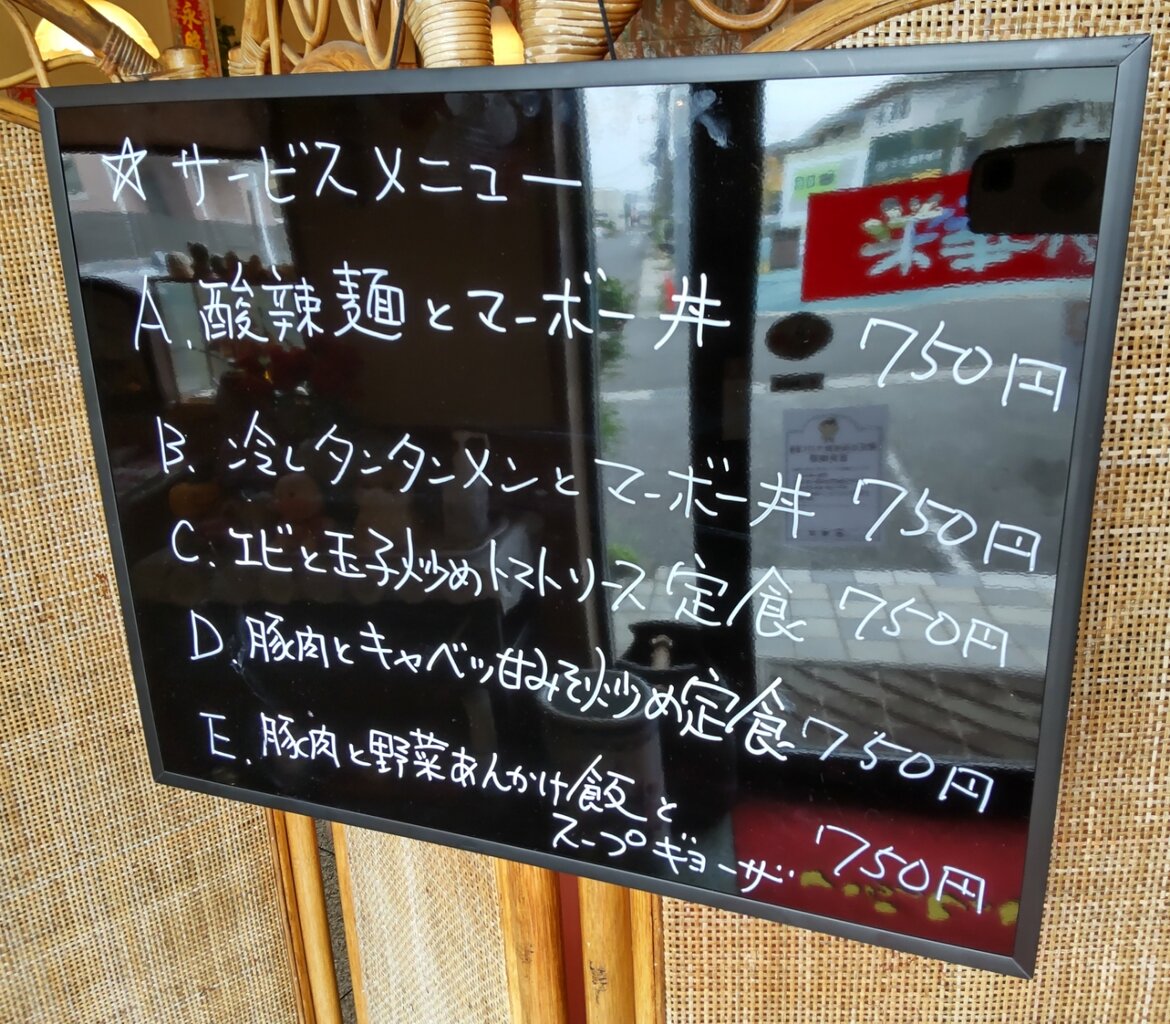 ☆サービスメニュー
A.酸辣麺とマーボー丼 750円
B.冷しタンタンメンとマーボー丼 750円
C.エビと玉子炒めトマトソース定食 750円
D.豚肉とキャベツ甘みそ炒め定食 750円
E.豚肉と野菜あんかけ飯と
スープギョーザ 750円